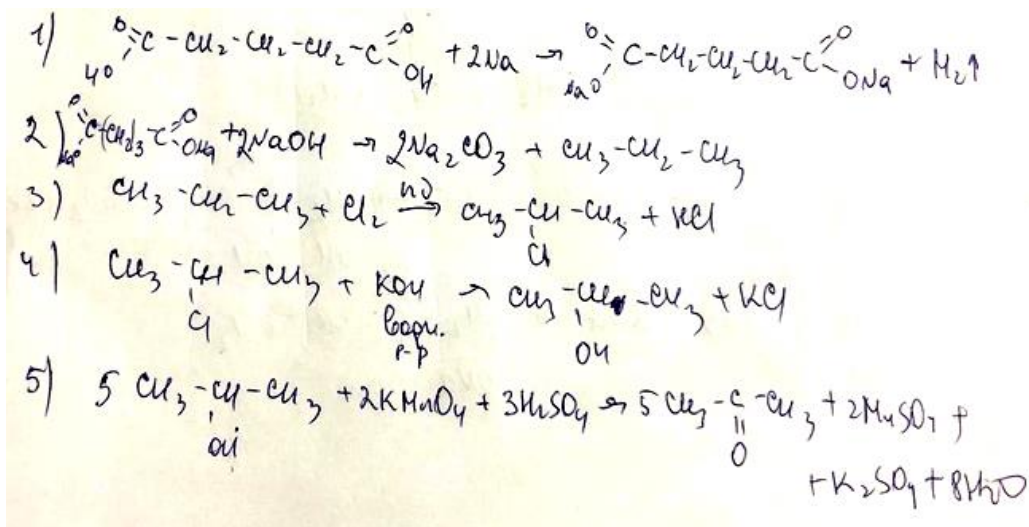 1) O=C(HO)-CH2-CH2-CH2-C(=O)OH + 2Na → O=C(NaO)-CH2-CH2-CH2-C(=O)ONa + H2↑
2) O=C(NaO)-(CH2)3-C(=O)ONa + 2NaOH → 2Na2CO3 + CH3-CH2-CH3
3) CH3-CH2-CH3 + Cl2 hν→ CH3-CH(Cl)-CH3 + HCl
4) CH3-CH(Cl)-CH3 + KOH водн. р-р → CH3-CH(OH)-CH3 + KCl
5) 5CH3-CH(OH)-CH3 + 2KMnO4 + 3H2SO4 → 5CH3-C(=O)-CH3 + 2MnSO4 +
+ K2SO4 + 8H2O